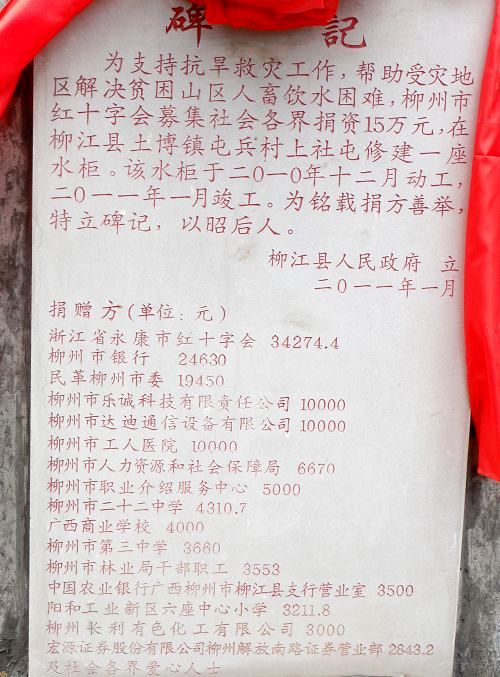 碑 記
为支持抗旱救灾工作，帮助受灾地
区解决贫困山区人畜饮水困难，柳州市
红十字会募集社会各界捐资15万元，在
柳江县土博镇屯兵村上社屯修建一座
水柜。该水柜于二0一0年十二月动工，
二0一一年一月竣工。为铭载捐方善举，
特立碑记，以昭后人。
柳江县人民政府 立
二0一一年一月
捐赠方(单位：元)
浙江省永康市红十字会 34274.4
柳州市银行 24630
民革柳州市委 19450
柳州市乐诚科技有限责任公司 10000
柳州市达迪通信设备有限公司 10000
柳州市工人医院 10000
柳州市人力资源和社会保障局 6670
柳州市职业介绍服务中心 5000
柳州市二十二中学 4310.7
广西商业学校 4000
柳州市第三中学 3660
柳州市林业局干部职工 3553
中国农业银行广西柳州市柳江县支行营业室 3500
阳和工业新区六座中心小学 3211.8
柳州长利有色化工有限公司 3000
宏源证券股份有限公司柳州解放南路证券营业部 2843.2
及社会各界爱心人士